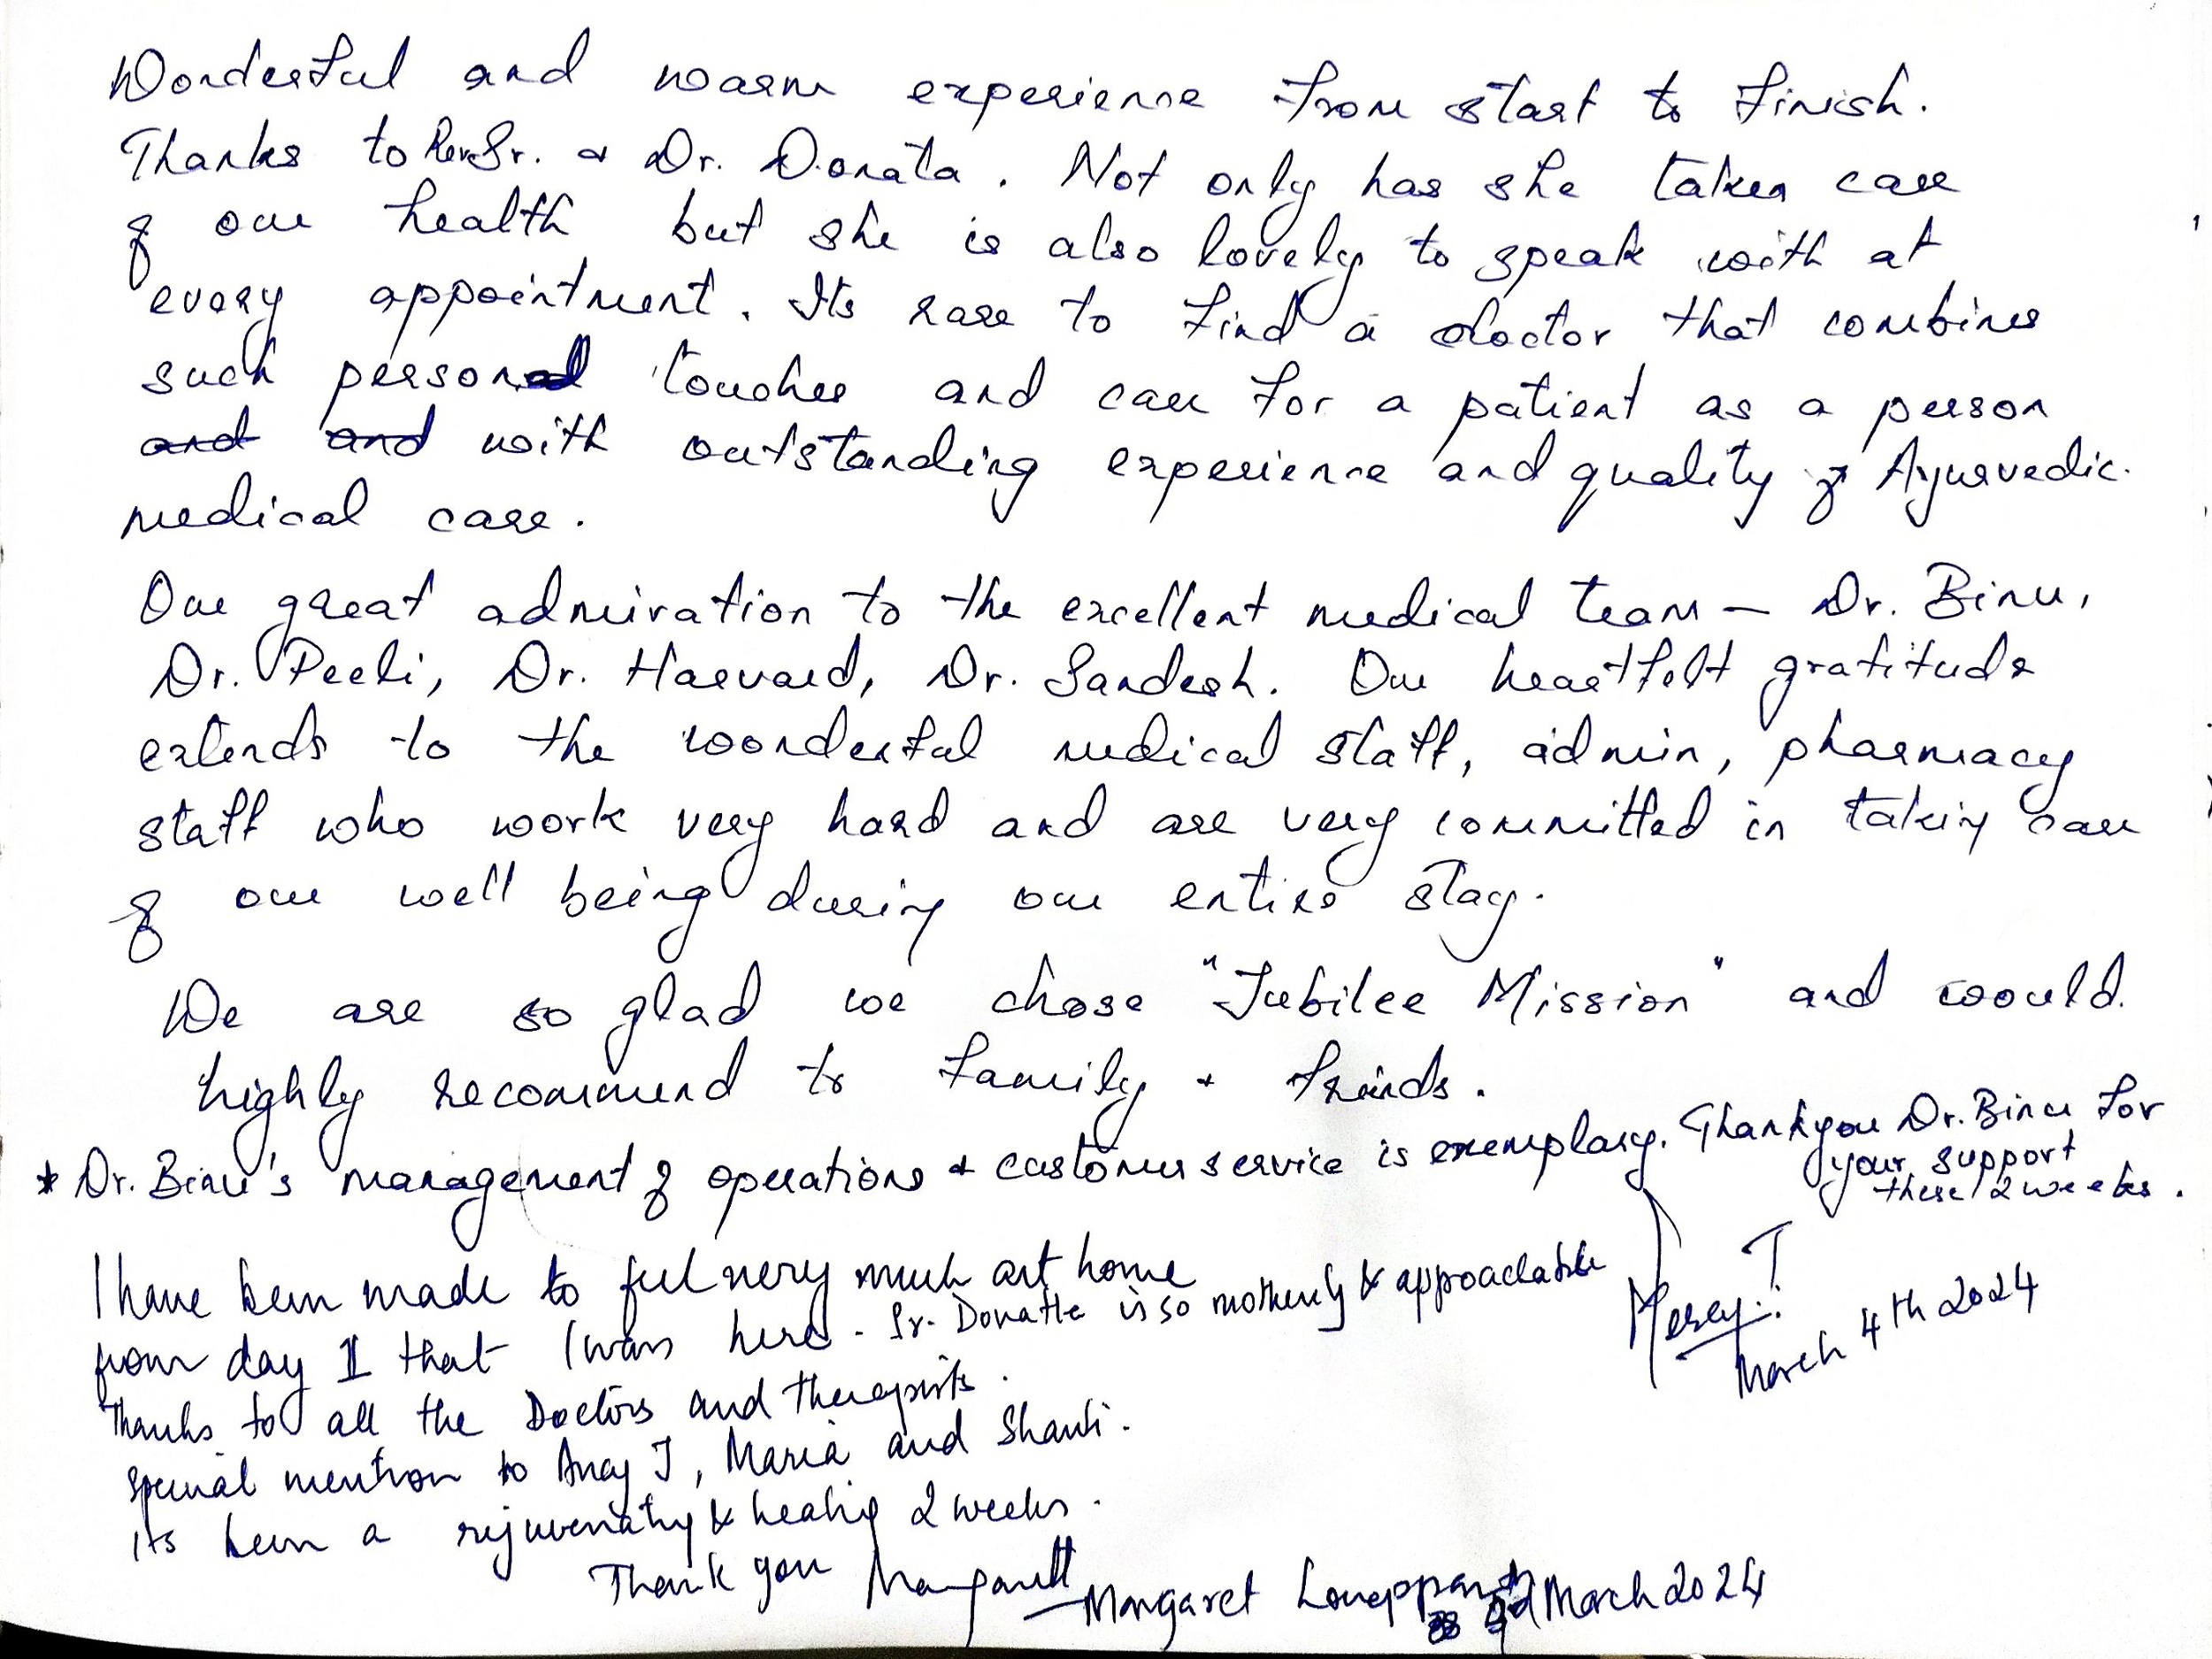 Wonderful and warm experience from start to finish.
Thanks to Rev.Sr. & Dr. Donata. Not only has she taken care
of our health but she is also lovely to speak with at
every appointment. Its rare to find a doctor that combines
such personal touches and care for a patient as a person
and and with outstanding experience and quality of Ayurvedic
medical care.
Our great admiration to the excellent medical team — Dr. Binu,
Dr. Peeli, Dr. Harvard, Dr. Sandesh. Our heartfelt gratitude
extends to the wonderful medical staff, admin, pharmacy
staff who work very hard and are very committed in taking care
of our well being during our entire stay.
We are so glad we chose "Jubilee Mission" and would
highly recommend to family & friends.
* Dr. Binu's management of operations & customer service is exemplary. Thank you Dr. Binu for
your support
these 2 weeks.
Mercy T
March 4th 2024
I have been made to feel very much at home
from day 1 that I was here. Sr. Donatte is so motherly & approachable
Thanks to all the Doctors and Therapists.
special mention to Ancy J, Maria and Shanti.
its been a rejuvenating & healing 2 weeks.
Thank you
Margaret March 2024